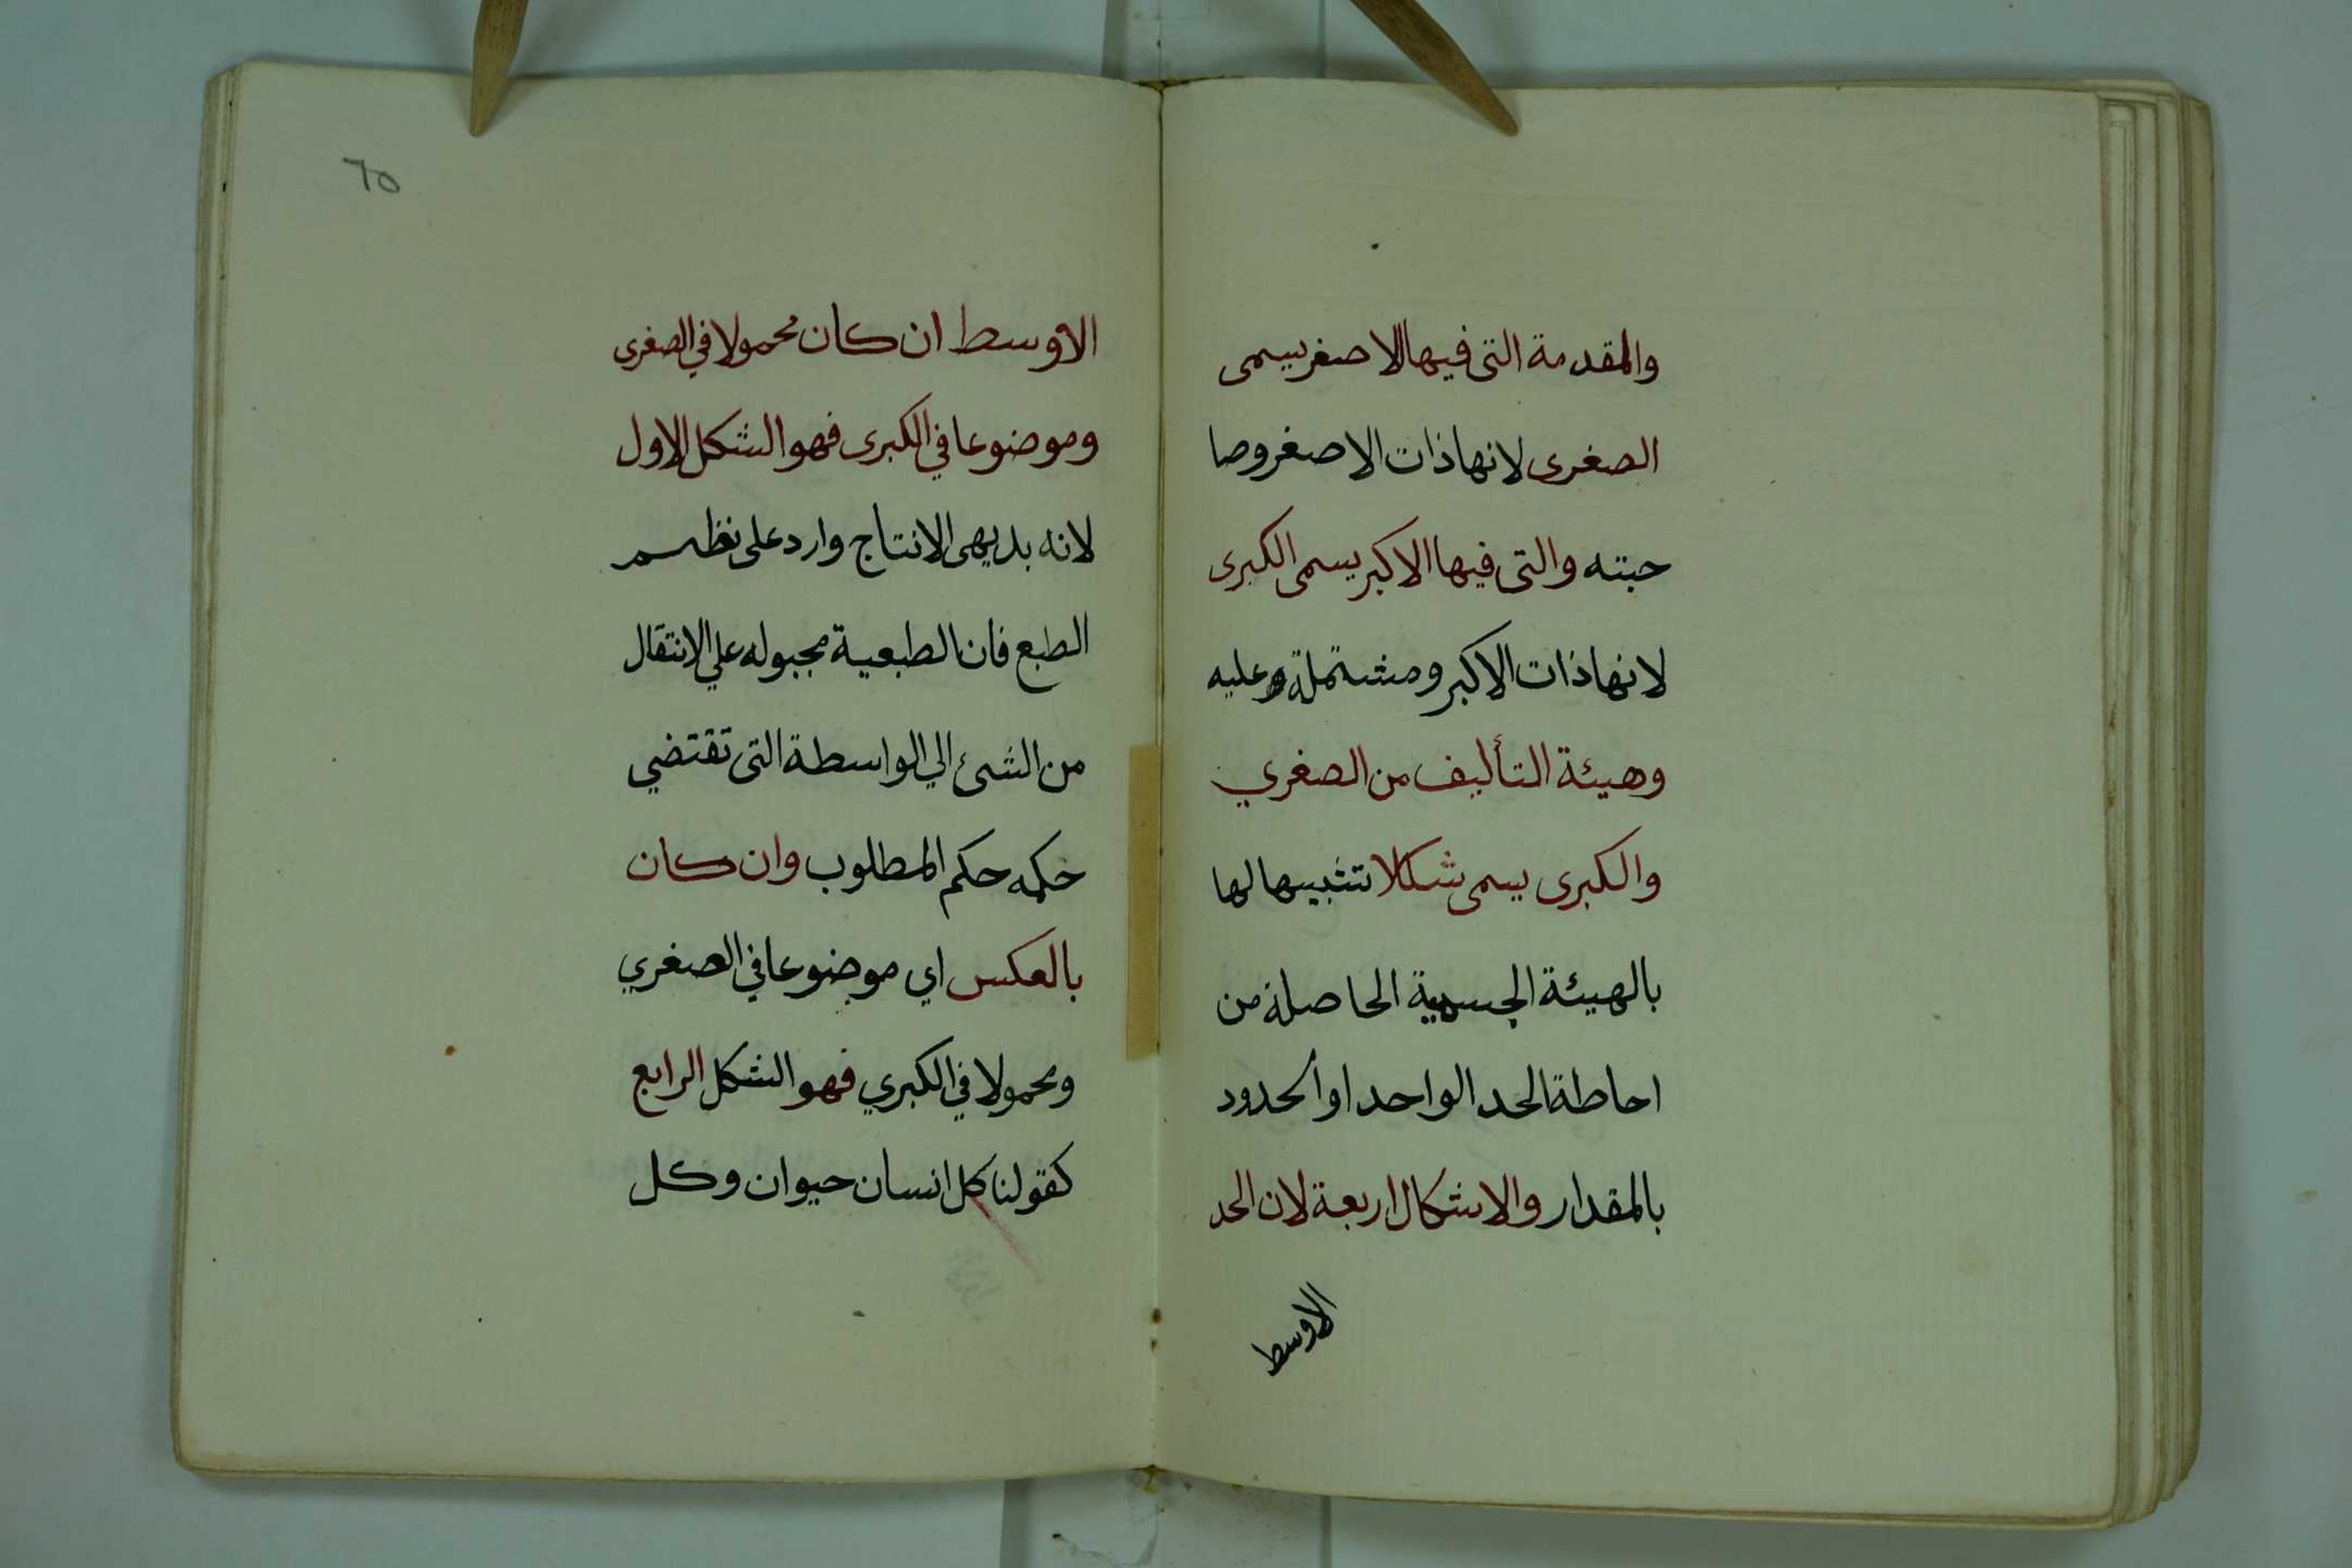 والمقدمة التى فيها الاصغر يسمى
الصغرى لانها ذات الاصغر وصا
حبته والتى فيها الاكبر يسمى الكبرى
لانها ذات الاكبر ومشتملة عليه
وهيئة التأليف من الصغري
والكبرى يسمى شكلا تشبيها لها
بالهيئة الجسمية الحاصلة من
احاطة الحد الواحد او الحدود
بالمقدار والاشكال اربعة لان الحد
الاوسط
٦٥
الاوسط ان كان محمولا في الصغرى
وموضوعا في الكبرى فهو الشكل الاول
لانه بديهى الانتاج وارد على نظم
الطبع فان الطبعية مجبوله علي الانتقال
من الشئ الي الواسطة التى تقتضي
حكمه حكم المطلوب وان كان
بالعكس اي موضوعا في الصغري
ومحمولا في الكبري فهو الشكل الرابع
كقولنا كل انسان حيوان وكل